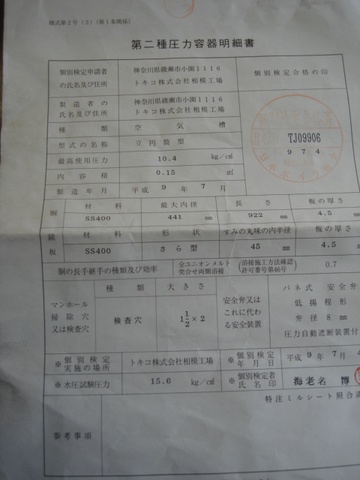 様式第2号(3)(第1条関係)
第二種圧力容器明細書
個別検定申請者の氏名及び住所
神奈川県綾瀬市小園1116
トキコ株式会社相模工場
個別検定合格の印
製造者の氏名及び住所
神奈川県綾瀬市小園1116
トキコ株式会社相模工場
種類 空気槽
TJ09906
型式の名称 立円筒型
974
最高使用圧力 10.4 kg/cm²
内容積 0.15 m³
製造年月 平成9年7月
胴 材料 最大内径 長さ 板の厚さ
SS400 441 mm 922 mm 4.5
鏡板 材料 形状 すみの丸味の内半径 板の厚さ
SS400 さら型 45 mm 4.5
胴の長手継手の種類及び効率
全ユニオンメルト突合せ両側溶接
溶接施工方法確認許可番号第46号
0.7
マンホール掃除穴又は検査穴
種類 大きさ
検査穴 1 1/2 × 2
安全弁又はこれに代わる安全装置
バネ式安全
低揚程形
弁径 8 mm
圧力自動遮断装置付
※個別検定実施の場所
トキコ株式会社相模工場
※個別検定年月日
平成9年7月4
※水圧試験圧力 15.6 kg/cm²
※個別検定者氏名印
海老名 博
特注ミルシート照合済
参考事項